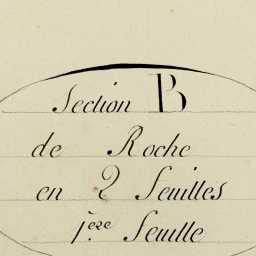 Section B
de Roche
en 2 Feuilles
1ère Feuille